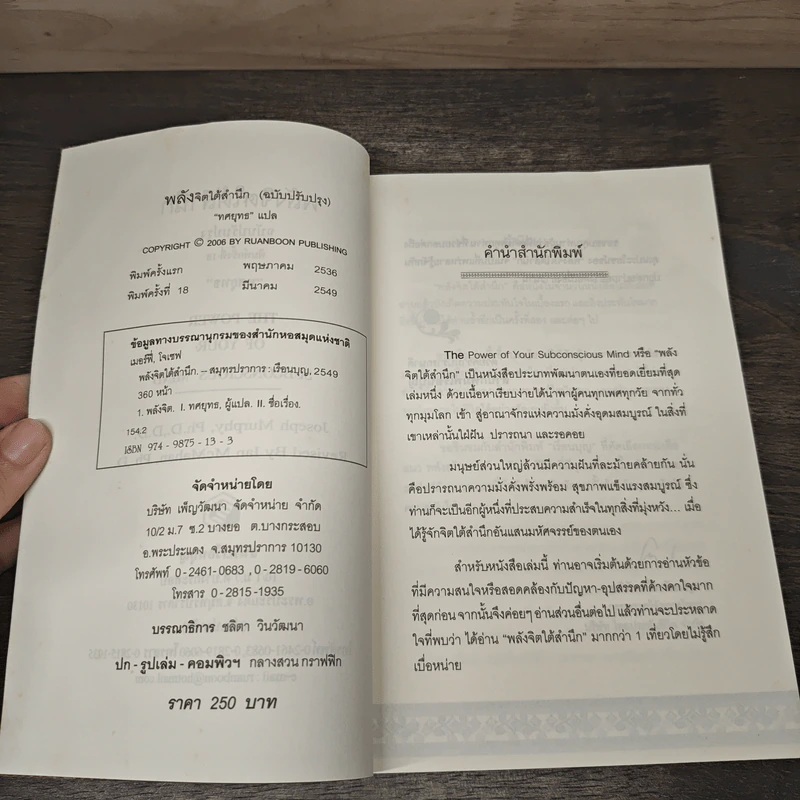 พลังจิตใต้สำนึก (ฉบับปรับปรุง)
"ทศยุทธ" แปล
COPYRIGHT © 2006 BY RUANBOON PUBLISHING
พิมพ์ครั้งแรก พฤษภาคม 2536
พิมพ์ครั้งที่ 18 มีนาคม 2549
ข้อมูลทางบรรณานุกรมของสำนักหอสมุดแห่งชาติ
เมอร์ฟี่, โจเซฟ
พลังจิตใต้สำนึก. – สมุทรปราการ : เรือนบุญ, 2549
360 หน้า
1. พลังจิต. I. ทศยุทธ, ผู้แปล. II. ชื่อเรื่อง.
154.2
ISBN 974 - 9875 - 13 - 3
จัดจำหน่ายโดย
บริษัท เพ็ญวัฒนา จัดจำหน่าย จำกัด
10/2 ม.7 ซ.2 บางยอ ต.บางกระสอบ
อ.พระประแดง จ.สมุทรปราการ 10130
โทรศัพท์ 0-2461-0683 , 0-2819-6060
โทรสาร 0-2815-1935
บรรณาธิการ ชลิตา วินวัฒนา
ปก - รูปเล่ม - คอมพิวฯ กลางสวน กราฟฟิก
ราคา 250 บาท
คำนำสำนักพิมพ์
The Power of Your Subconscious Mind หรือ "พลัง
จิตใต้สำนึก" เป็นหนังสือประเภทพัฒนาตนเองที่ยอดเยี่ยมที่สุด
เล่มหนึ่ง ด้วยเนื้อหาเรียบง่ายได้นำพาผู้คนทุกเพศทุกวัย จากทั่ว
ทุกมุมโลก เข้า สู่อาณาจักรแห่งความมั่งคั่งอุดมสมบูรณ์ ในสิ่งที่
เขาเหล่านั้นใฝ่ฝัน ปรารถนา และรอคอย
มนุษย์ส่วนใหญ่ล้วนมีความฝันที่ละม้ายคล้ายกัน นั่น
คือปรารถนาความมั่งคั่งพรั่งพร้อม สุขภาพแข็งแรงสมบูรณ์ ซึ่ง
ท่านก็จะเป็นอีกผู้หนึ่งที่ประสบความสำเร็จในทุกสิ่งที่มุ่งหวัง... เมื่อ
ได้รู้จักจิตใต้สำนึกอันแสนมหัศจรรย์ของตนเอง
สำหรับหนังสือเล่มนี้ ท่านอาจเริ่มต้นด้วยการอ่านหัวข้อ
ที่มีความสนใจหรือสอดคล้องกับปัญหา-อุปสรรคที่ค้างคาใจมาก
ที่สุดก่อน จากนั้นจึงค่อยๆ อ่านส่วนอื่นต่อไป แล้วท่านจะประหลาด
ใจที่พบว่า ได้อ่าน "พลังจิตใต้สำนึก" มากกว่า 1 เที่ยวโดยไม่รู้สึก
เบื่อหน่าย